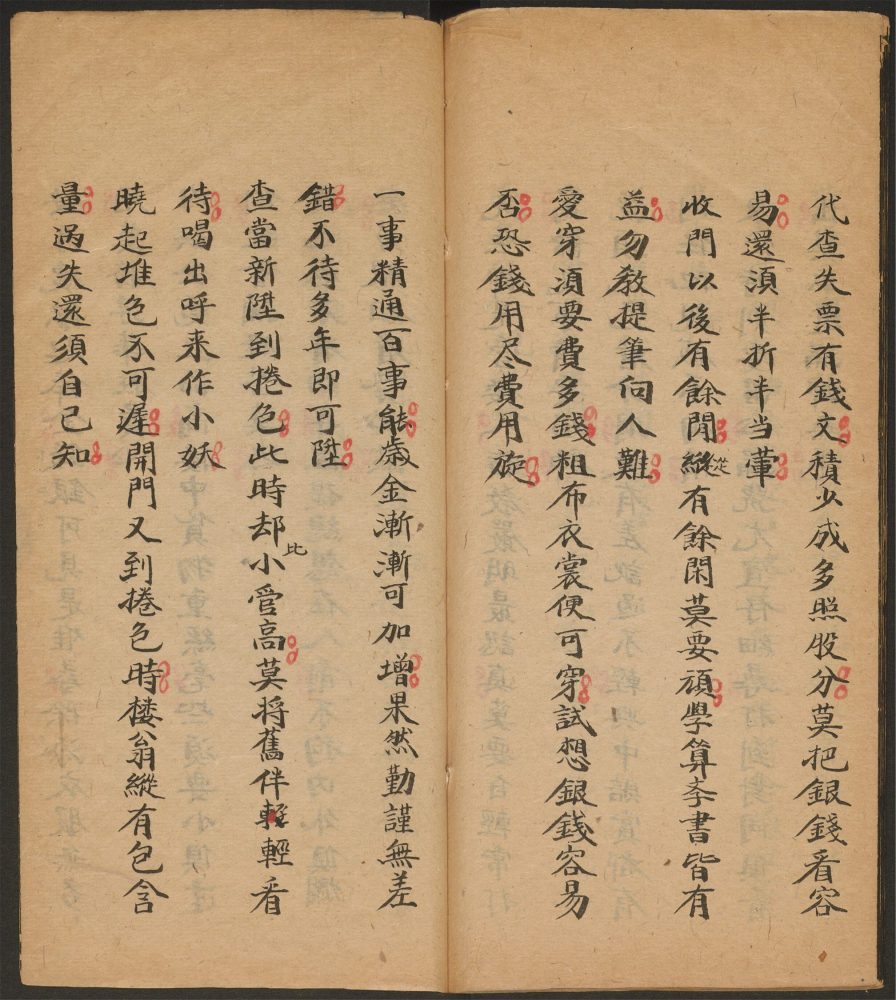 代查失票有錢文積少成多照股分莫把銀錢看容
易還須半折半当葷
收門以後有餘閒縱從有餘閑莫要頑學算李書皆有
益勿教提筆向人難
愛穿須要費多錢粗布衣裳便可穿試想銀錢容易
否恐錢用尽費用旋
一事精通百事能歲金漸漸可加增果然勤謹無差
錯不待多年即可陞
查當新陞到捲色此時却小比管高莫將舊伴輕輕看
待喝出呼来作小妖
曉起堆色不可遲開門又到捲色時楼翁縱有包含
量過失還須自己知